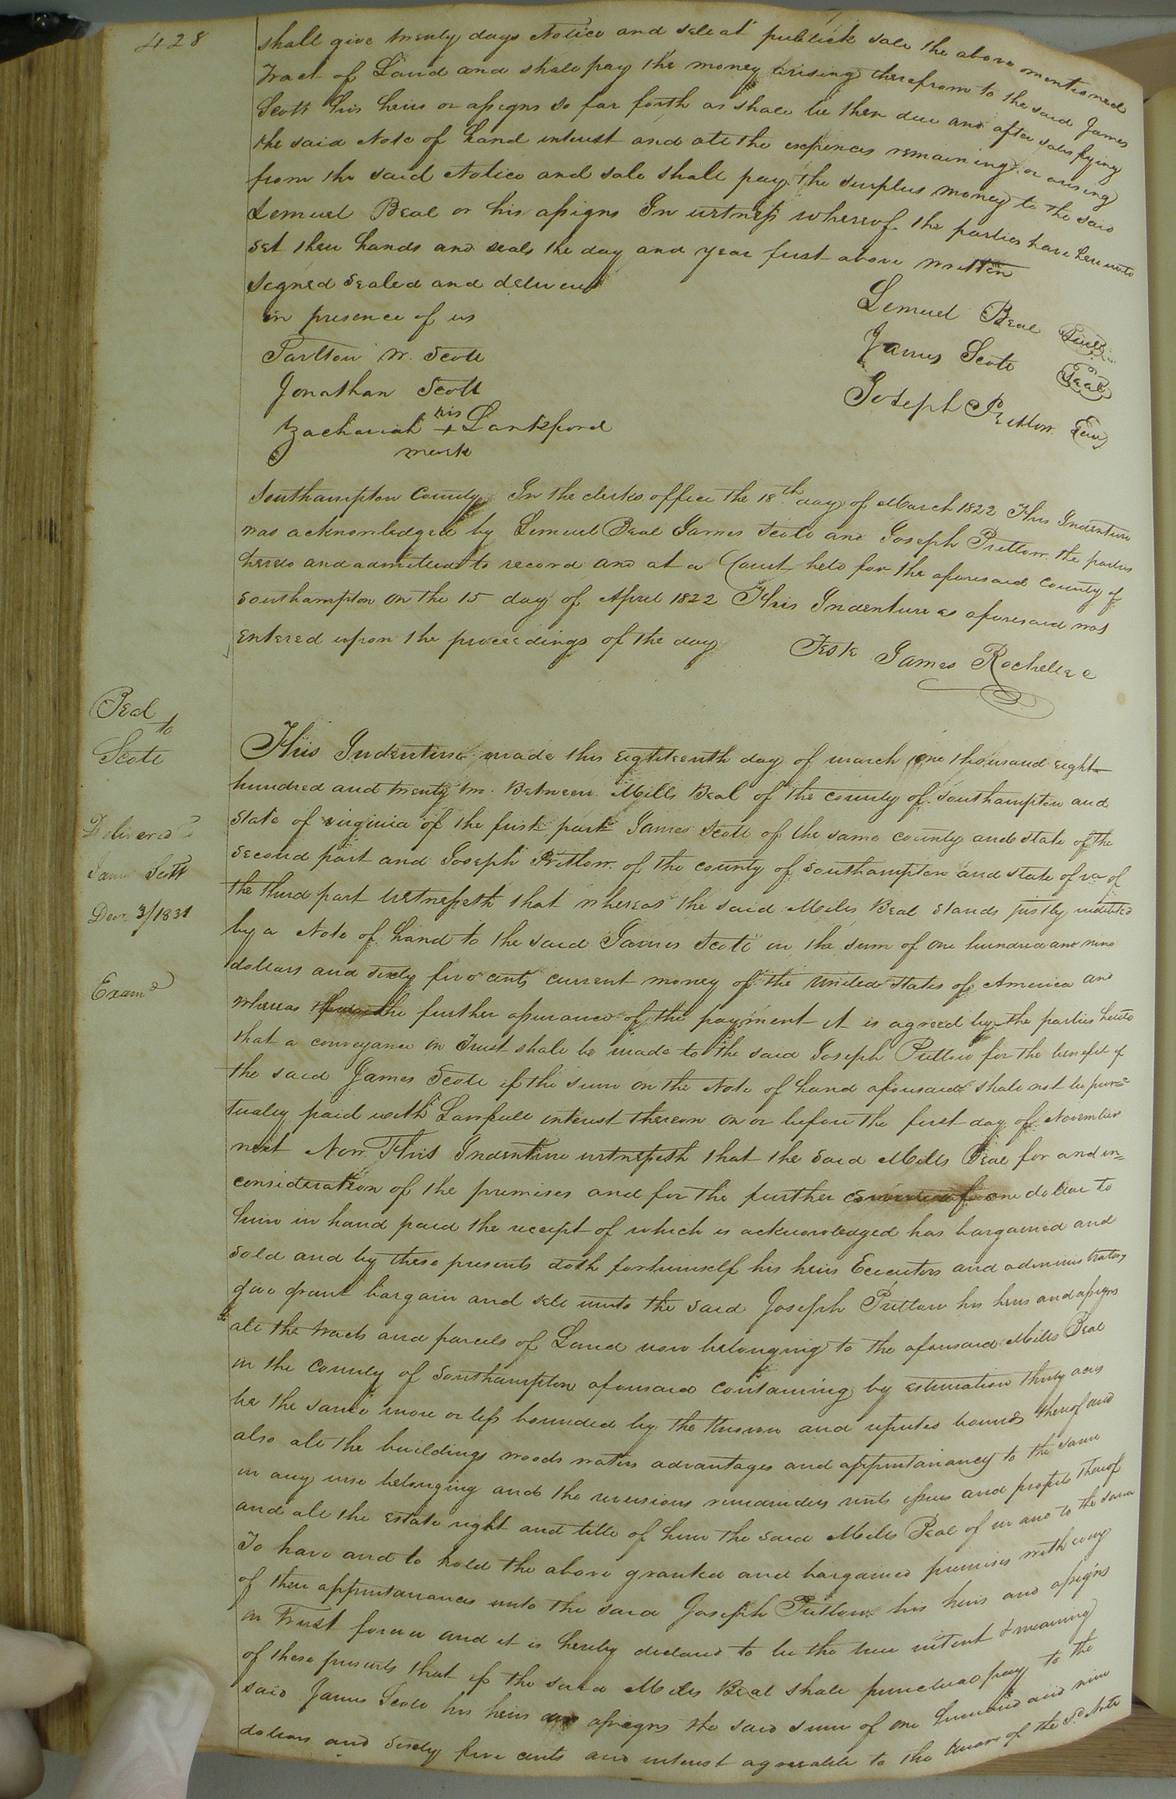 428
shall give twenty days Notice and sele at publick sale the above mentioned
Tract of Land and shale pay the money arising therefrom to the said James
Scott his heirs or assigns so far forth as shale be then due and after satisfying
the said Note of hand interest and all the expences remaining or arising
from the said Notice and sale shall pay the surplus money to the said
Lemuel Beal or his assigns In witness whereof the parties have hereunto
set their hands and seals the day and year first above written
Signed Sealed and delivered
in presence of us
Lemuel Beal Seal
James Scott Seal
Joseph Pretlow Seal
Tarlton W. Scott
Jonathan Scott
Zachariah his + Lankford
mark
Southampton County In the clerks office the 18th day of March 1822 This Indenture
was acknowledged by Lemuel Beal James Scott and Joseph Pretlow the parties
hereto and admitted to record and at a Court held for the aforesaid County of
Southampton on the 15 day of April 1822 This Indenture as aforesaid was
entered upon the proceedings of the day
Teste James Rochelle C
Beal
to
Scott
Delivered
James Scott
Decr 3/1831
Examd
This Indenture made this eighteenth day of march one thousand eight
hundred and twenty two Between Mills Beal of the county of Southampton and
State of virginia of the first part James Scott of the same county and state of the
second part and Joseph Pretlow of the county of Southampton and state of va of
the third part Witnesseth that whereas the said Mills Beal stands justly indebted
by a Note of hand to the said James Scott in the sum of one hundred and nine
dollars and sixty five cents current money of the United States of America and
whereas the further assurance of the payment it is agreed by the parties hereto
that a conveyance in Trust shall be made to the said Joseph Pretlow for the benefit of
the said James Scott if the sum on the Note of hand aforesaid shale not be punc=
tualy paid with Lawfull interest thereon on or before the first day of November
next Now This Indenture witnesseth that the said Mills Beal for and in=
consideration of the premises and for the further one dollar to
him in hand paid the receipt of which is acknowledged has bargained and
sold and by these presents doth for himself his heirs Executors and administrators
give grant bargain and sele unto the said Joseph Pretlow his heirs and assigns
all the tracts and parcels of Land now belonging to the aforesaid Mills Beal
in the County of Southampton aforesaid containing by estimation thirty acres
be the same more or less bounded by the known and reputed bounds thereof and
also all the buildings woods waters advantages and appurtanancy to the same
in any wise belonging and the reversions remainders rents issues and profits thereof
and all the estate right and title of him the said Mills Beal of in and to the same
To have and to hold the above granted and bargained premises with every
of their appurtanances unto the said Joseph Pretlow his heirs and assigns
in Trust forever and it is hereby declared to be the true intent & meaning
of these presents that if the said Mills Beal shale punctual pay to the
said James Scott his heirs assigns the said sum of one hundred and nine
dollars and Sixty five cents and interest agreeable to the tenor of the Sd Note